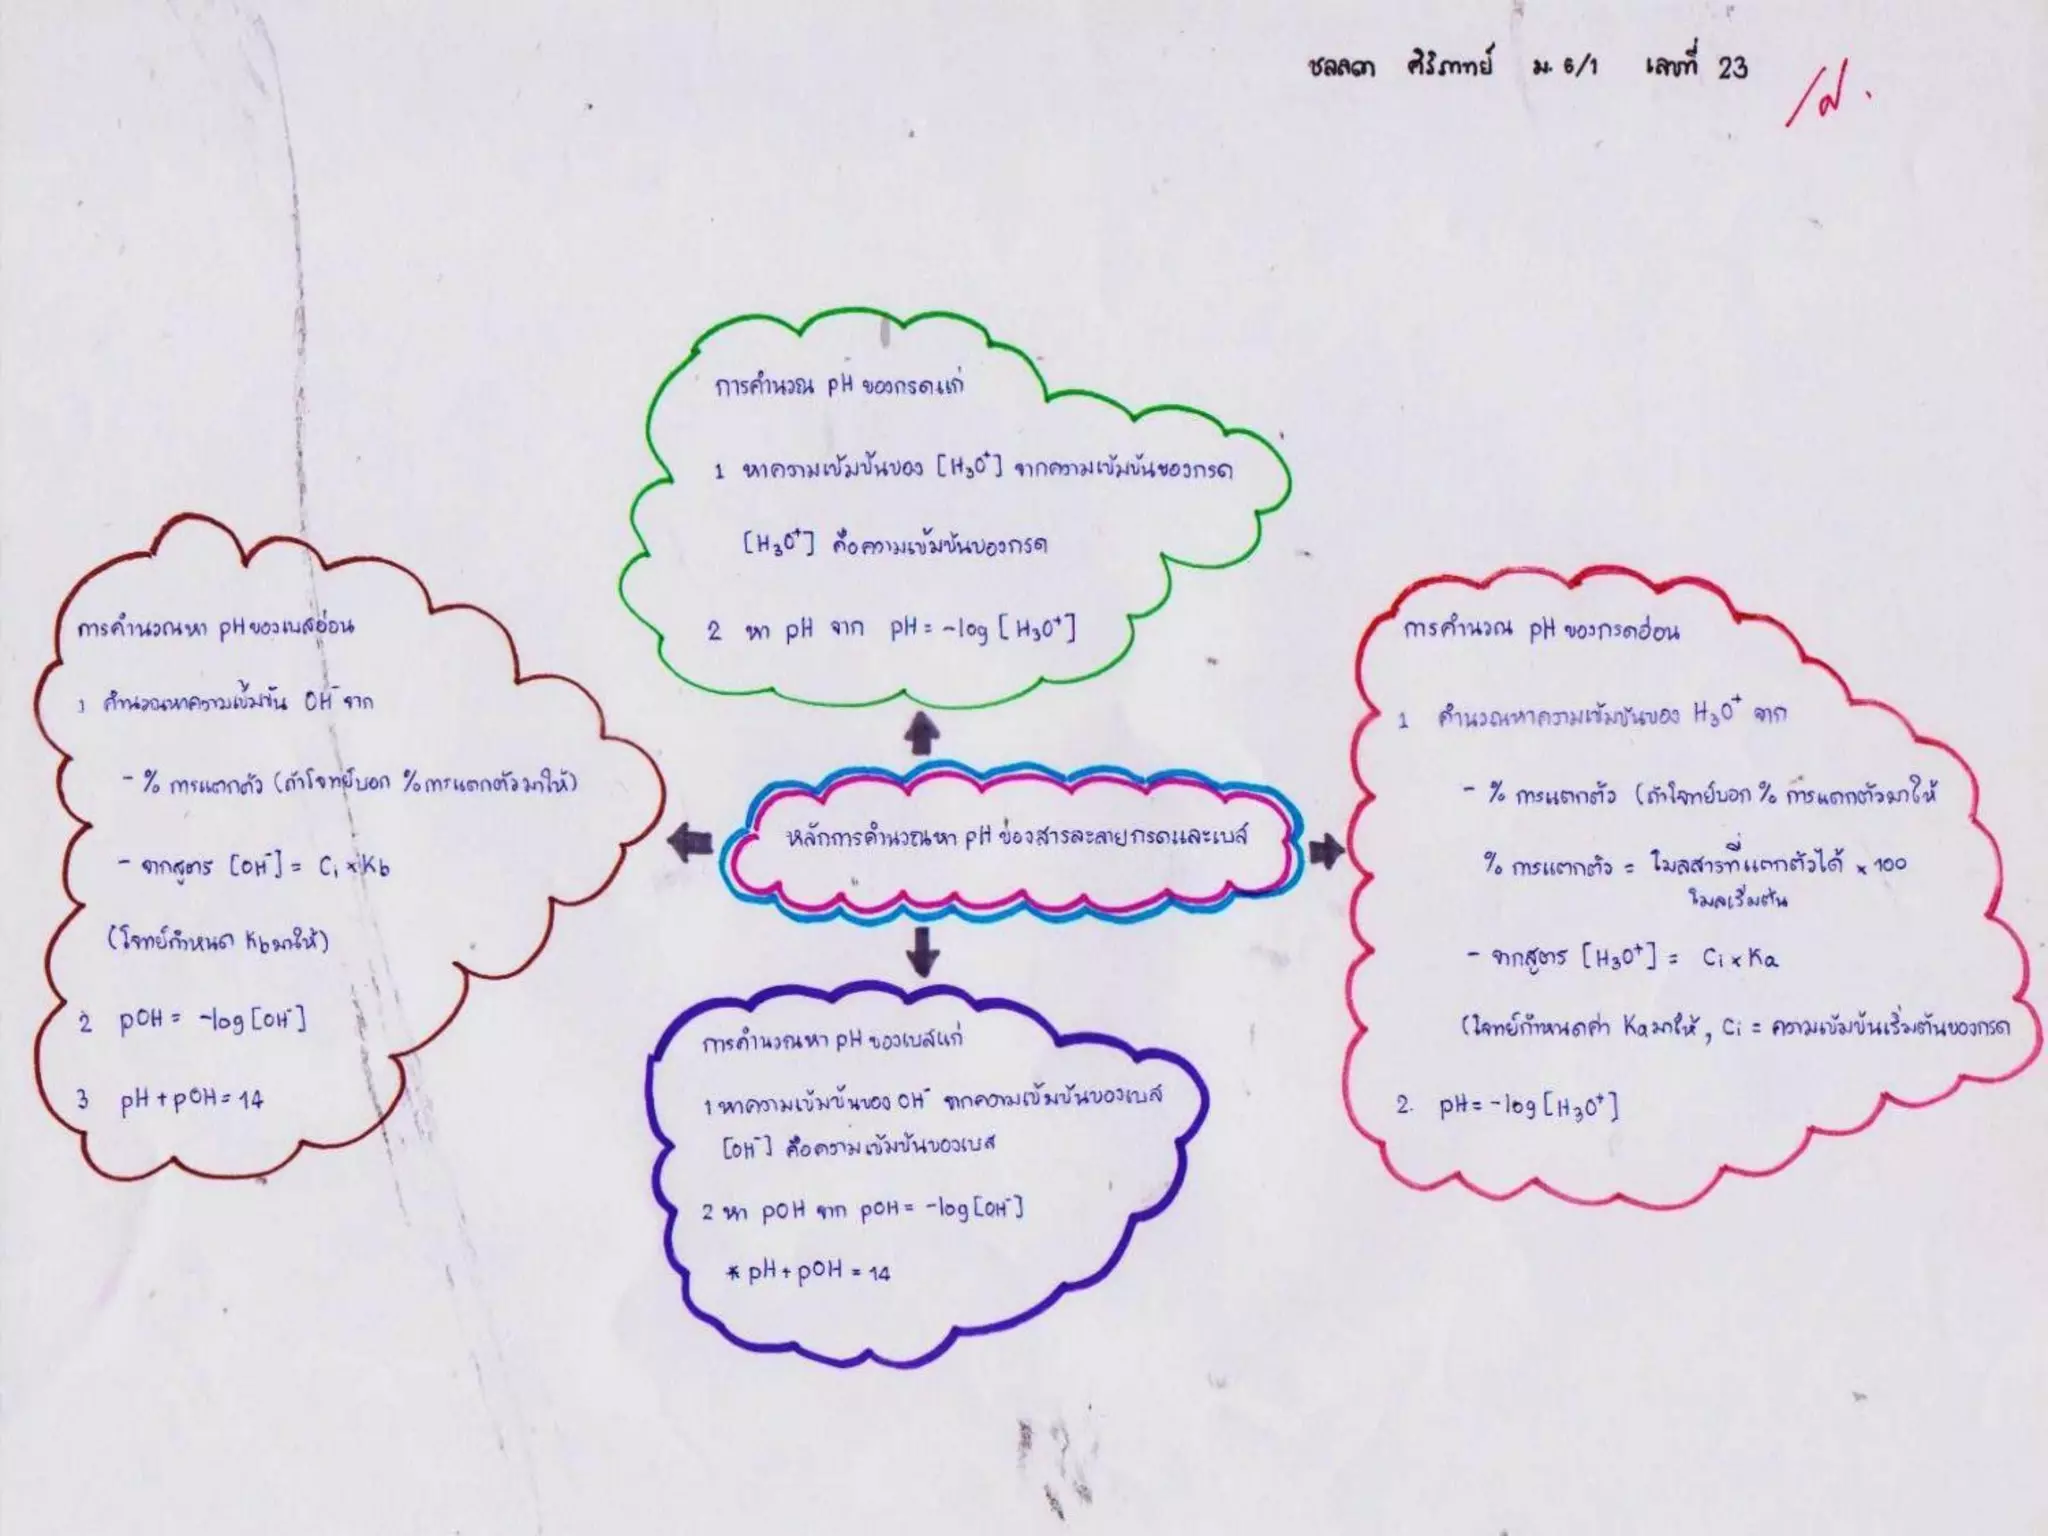 ชลลดา ศิริภาทย์ ม. 6/1 เลขที่ 23
การคำนวณ pH ของกรดแก่
1 หาความเข้มข้นของ [H₃O⁺] จากความเข้มข้นของกรด
[H₃O⁺] คือความเข้มข้นของกรด
2 หา pH จาก pH = -log [H₃O⁺]
การคำนวณหา pH ของเบสอ่อน
1 คำนวณหาความเข้มข้น OH⁻ จาก
- % การแตกตัว (ถ้าโจทย์บอก % การแตกตัวมาให้)
- จากสูตร [OH⁻] = Ci × Kb
(โจทย์กำหนด Kb มาให้)
2 pOH = -log [OH⁻]
3 pH + pOH = 14
หลักการคำนวณหา pH ของสารละลายกรดและเบส
การคำนวณ pH ของกรดอ่อน
1 คำนวณหาความเข้มข้นของ H₃O⁺ จาก
- % การแตกตัว (ถ้าโจทย์บอก % การแตกตัวมาให้
% การแตกตัว = โมลสารที่แตกตัวได้ × 100
โมลเริ่มต้น
- จากสูตร [H₃O⁺] = Ci × Ka
(โจทย์กำหนดค่า Ka มาให้, Ci = ความเข้มข้นเริ่มต้นของกรด
2. pH = -log [H₃O⁺]
การคำนวณหา pH ของเบสแก่
1 หาความเข้มข้นของ OH⁻ จากความเข้มข้นของเบส
[OH⁻] คือความเข้มข้นของเบส
2 หา pOH จาก pOH = -log [OH⁻]
* pH + pOH = 14